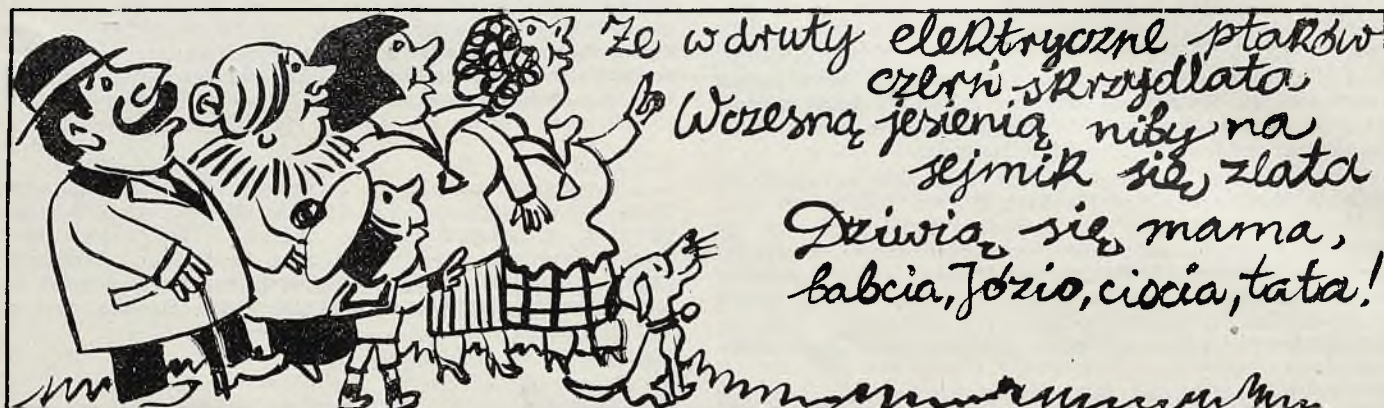 Że w druty elektryczne ptaków
czerń skrzydlata
Wczesną jesienią niby na
sejmik się zlata
Dziwią się mama,
babcia, Józio, ciocia, tata!